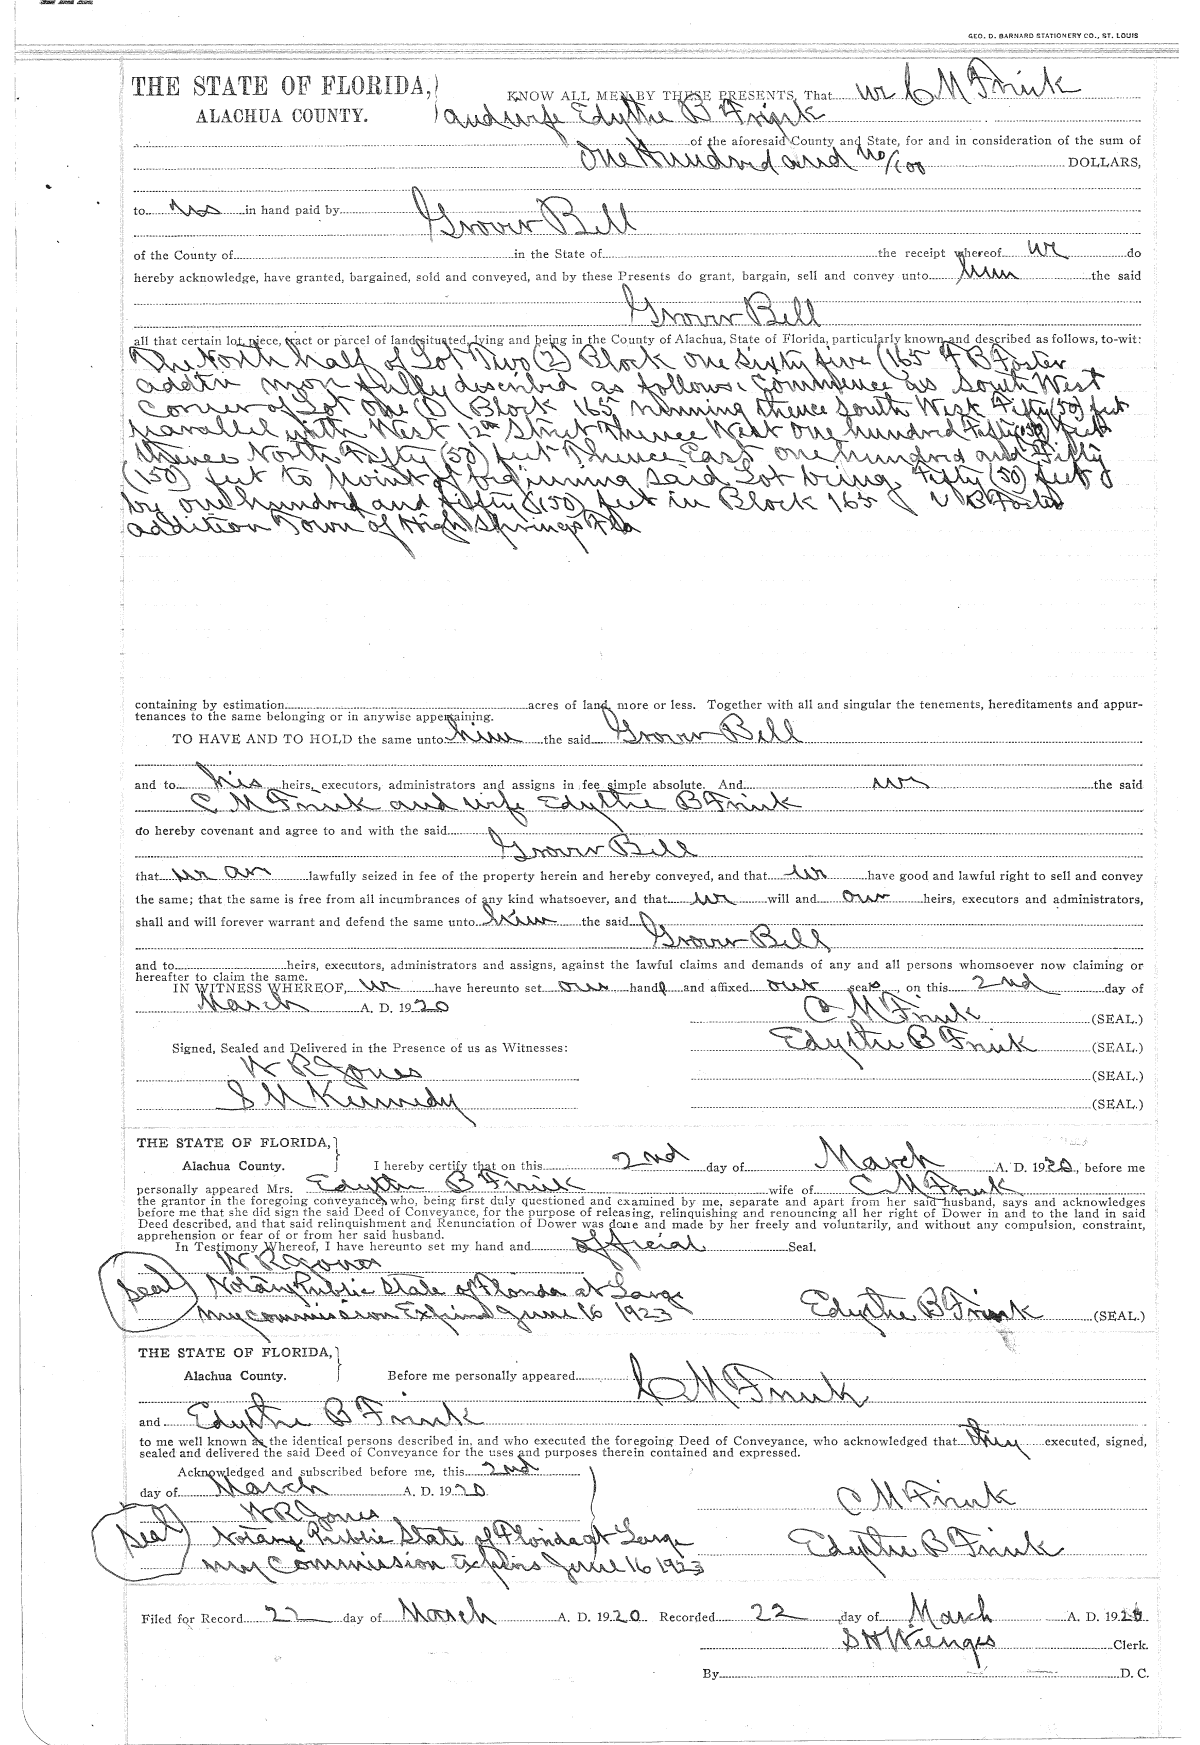 GEO. D. BARNARD STATIONERY CO., ST. LOUIS
THE STATE OF FLORIDA, KNOW ALL MEN BY THESE PRESENTS, That we C M Frink
ALACHUA COUNTY. and wife Edythe B Frink
of the aforesaid County and State, for and in consideration of the sum of
One Hundred and no/100 DOLLARS,
to us in hand paid by
Grover Bell
of the County of in the State of the receipt whereof we do
hereby acknowledge, have granted, bargained, sold and conveyed, and by these Presents do grant, bargain, sell and convey unto him the said
Grover Bell
all that certain lot, piece, tract or parcel of land situated, lying and being in the County of Alachua, State of Florida, particularly known and described as follows, to-wit:
The North half of Lot Two (2) Block One Sixty five (165 B Foster
addtn more fully described as follows: Commence as South West
Corner of Lot One (1) Block 165 running thence South West Fifty (50) feet
parallel with West 12th Street Thence West One hundred Fifty (150) feet
thence North Fifty (50) feet Thence East one hundred and Fifty
(150) feet to point of beginning said Lot being Fifty (50) feet
by one hundred and fifty (150) feet in Block 165 B Foster
addition Town of High Springs Fla
containing by estimation acres of land, more or less. Together with all and singular the tenements, hereditaments and appur-
tenances to the same belonging or in anywise appertaining.
TO HAVE AND TO HOLD the same unto him the said Grover Bell
and to his heirs, executors, administrators and assigns in fee simple absolute. And we the said
C M Frink and wife Edythe B Frink
do hereby covenant and agree to and with the said
Grover Bell
that we are lawfully seized in fee of the property herein and hereby conveyed, and that we have good and lawful right to sell and convey
the same; that the same is free from all incumbrances of any kind whatsoever, and that we will and our heirs, executors and administrators,
shall and will forever warrant and defend the same unto him the said
Grover Bell
and to heirs, executors, administrators and assigns, against the lawful claims and demands of any and all persons whomsoever now claiming or
hereafter to claim the same.
IN WITNESS WHEREOF, we have hereunto set our hands and affixed our seals, on this 2nd day of
March A. D. 1920
C M Frink (SEAL.)
Edythe B Frink (SEAL.)
Signed, Sealed and Delivered in the Presence of us as Witnesses:
W R Jones (SEAL.)
S M Kennedy (SEAL.)
THE STATE OF FLORIDA,
Alachua County. I hereby certify that on this 2nd day of March A. D. 1920, before me
personally appeared Mrs. Edythe B Frink wife of C M Frink
the grantor in the foregoing conveyance, who, being first duly questioned and examined by me, separate and apart from her said husband, says and acknowledges
before me that she did sign the said Deed of Conveyance, for the purpose of releasing, relinquishing and renouncing all her right of Dower in and to the land in said
Deed described, and that said relinquishment and Renunciation of Dower was done and made by her freely and voluntarily, and without any compulsion, constraint,
apprehension or fear of or from her said husband.
In Testimony Whereof, I have hereunto set my hand and official Seal.
W R Jones
Seal Notary Public State of Florida at Large
My Commission Expires June 16 1923 Edythe B Frink (SEAL.)
THE STATE OF FLORIDA,
Alachua County. Before me personally appeared C M Frink
and Edythe B Frink
to me well known as the identical persons described in, and who executed the foregoing Deed of Conveyance, who acknowledged that they executed, signed,
sealed and delivered the said Deed of Conveyance for the uses and purposes therein contained and expressed.
Acknowledged and subscribed before me, this 2nd
day of March A. D. 1920
C M Frink
W R Jones
Seal Notary Public State of Florida at Large Edythe B Frink
My Commission Expires June 16 1923
Filed for Record 22 day of March A. D. 1920 Recorded 22 day of March A. D. 1920
S H Wienges Clerk.
By D. C.